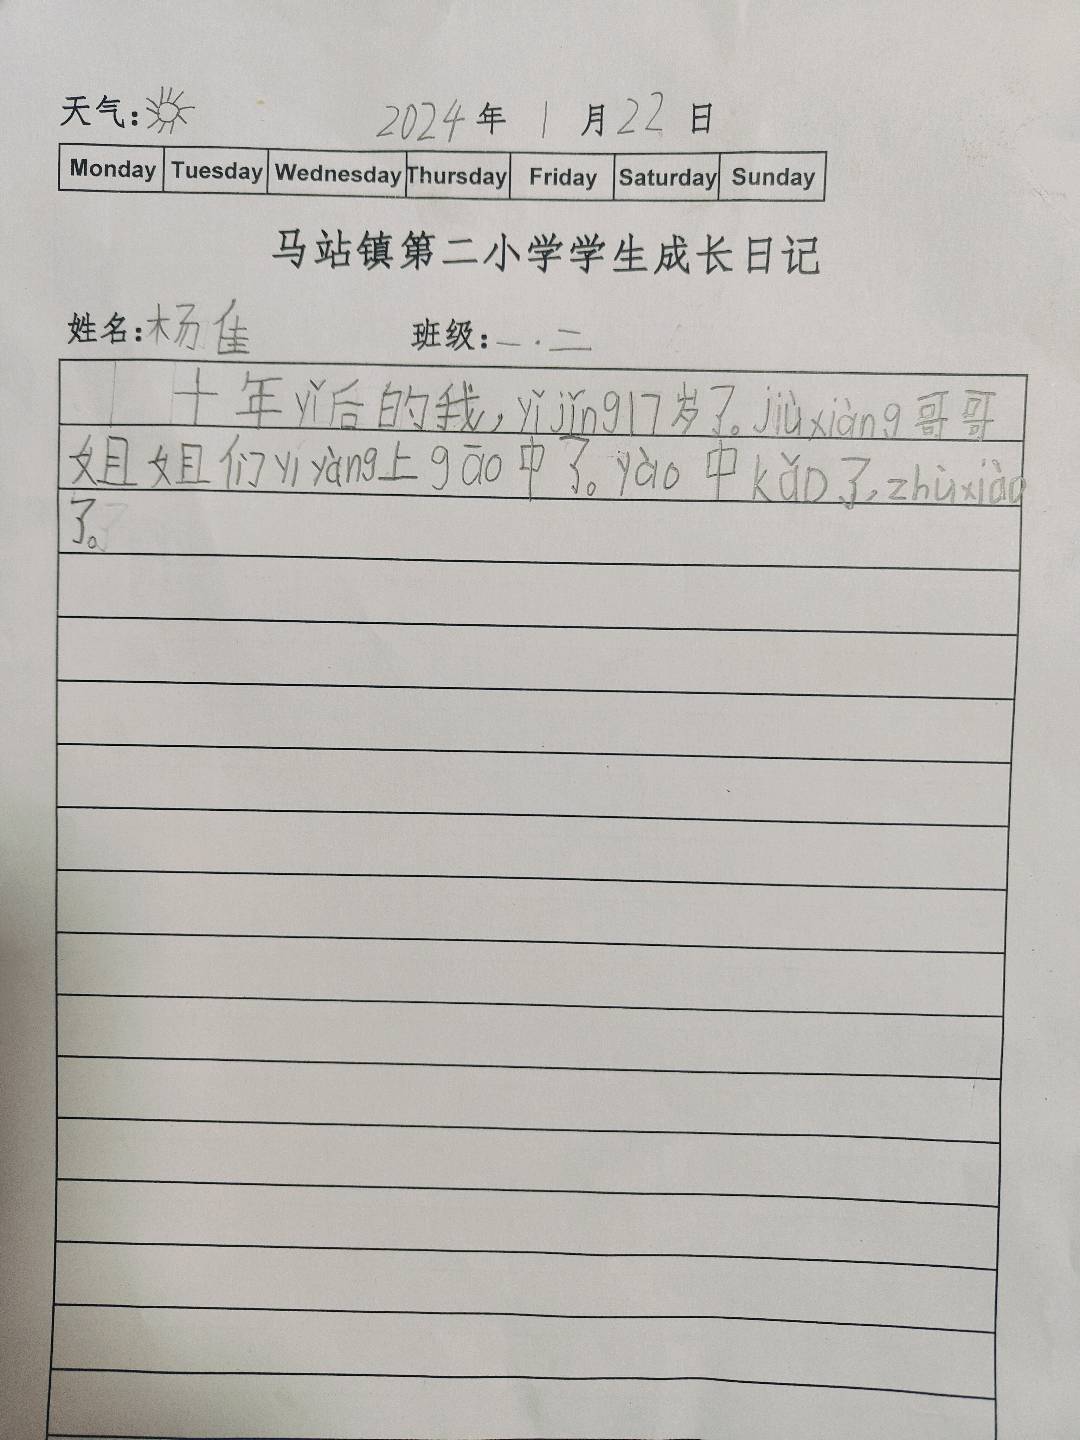 天气: 2024 年 1 月 22 日
Monday Tuesday Wednesday Thursday Friday Saturday Sunday
马站镇第二小学学生成长日记
姓名:杨隹 班级:一.二
十年yǐ后的我,yǐjīng17岁了。jiùxiàng哥哥
姐姐们yíyàng上gāo中了。yào中kǎo了,zhùxiào
了。